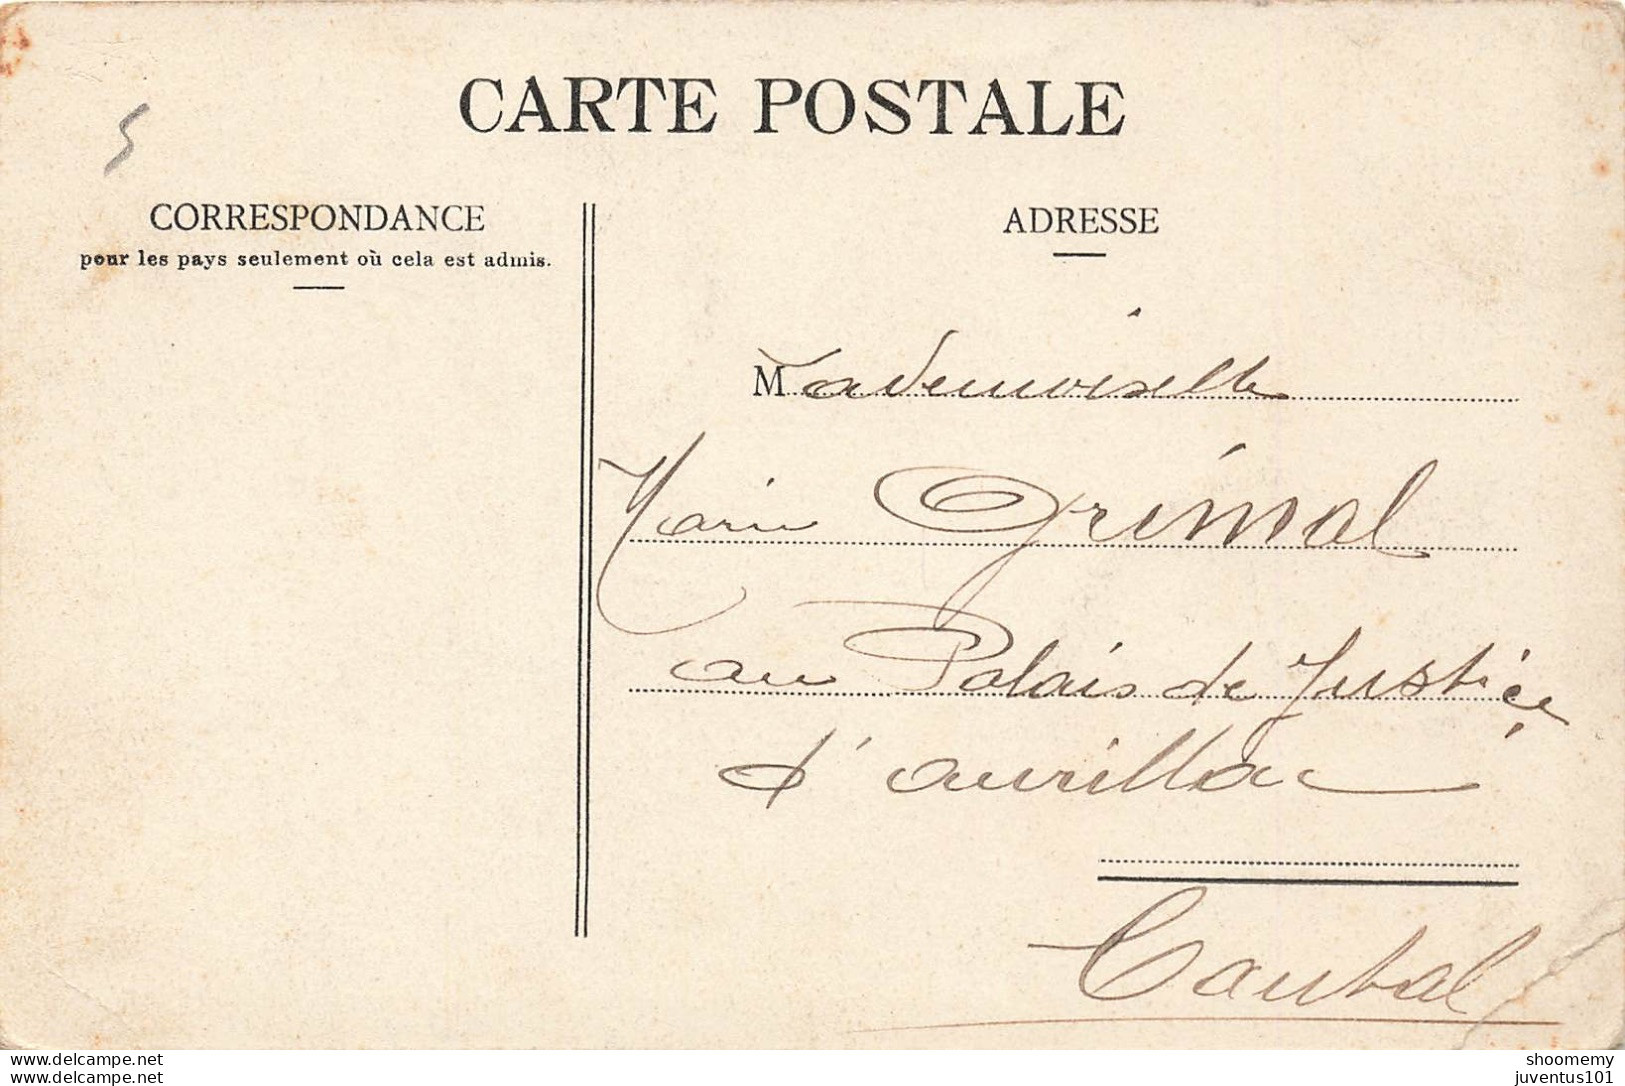 CARTE POSTALE
5
CORRESPONDANCE
pour les pays seulement où cela est admis.
ADRESSE
Mademoiselle
Marie Grimal
au Palais de Justice
d'aurillac
Cantal
www.delcampe.net
juventus101
shoomemy
juventus101